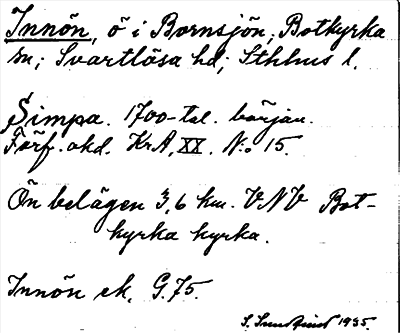 Innön, ö i Bornsjön; Botkyrka
sn; Svartlösa hd; Sthlms l.
Simpa. 1700-tal. början.
Förf. okd. KrA, XX. N:o 15.
Ön belägen 3,6 km. VNV Bot-
kyrka kyrka.
Innön ek. G.75.
S. 1935.